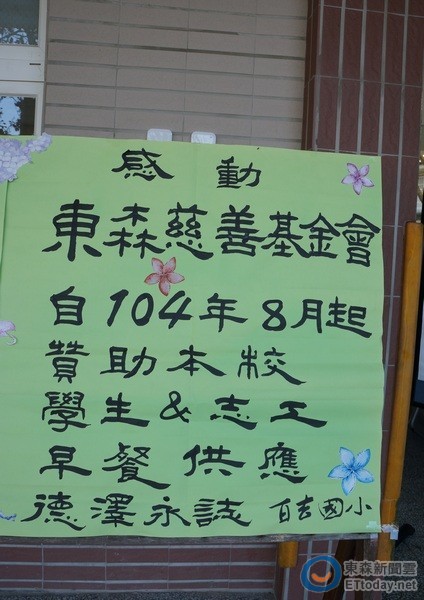 感動
東森慈善基金會
自104年8月起
贊助本校
學生&志工
早餐供應
德澤永誌 百吉國小
東森新聞雲
ETtoday.net